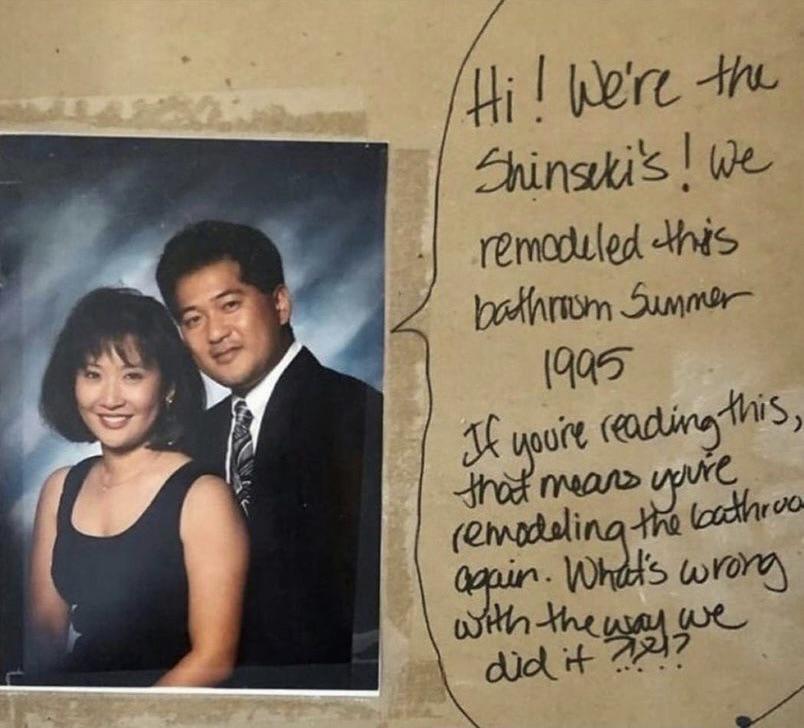 Hi! We're the
Shinseki's! We
remodeled this
bathroom Summer
1995
If you're reading this,
that means you're
remodeling the bathroo
again. What's wrong
with the way we
did it ?????